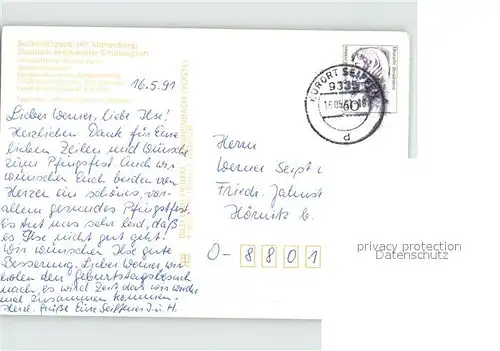 Seiffen/Erzgeb. (Kr. Marienberg)
16.5.91
Lieber Werner, liebe Ilse!
Herzlichen Dank für Eure
lieben Zeilen und Wünsche
zum Pfingstfest. Auch wir
wünschen Euch beiden von
Herzen ein schönes, vor-
allem gesundes Pfingstfest.
Es tut uns sehr leid, daß
es Ilse nicht gut geht!
Wir wünschen Ilse gute
Besserung. Lieber Werner, wir
holen den Geburtstagsbesuch
nach, es wird Zeit, daß wir wieder
mal zusammen kommen.
Herzl. Grüße Eure Seiffner J. u. H.
BILD UND HEIMAT REICHENBACH (VOGTL)
Deutsche Bundespost
60
KURORT SEIFFEN
9335
16.05.
d
Herrn
Werner Seipt
Friedr. Jahnstr
Hörnitz b.
O-8801
privacy protection
Datenschutz